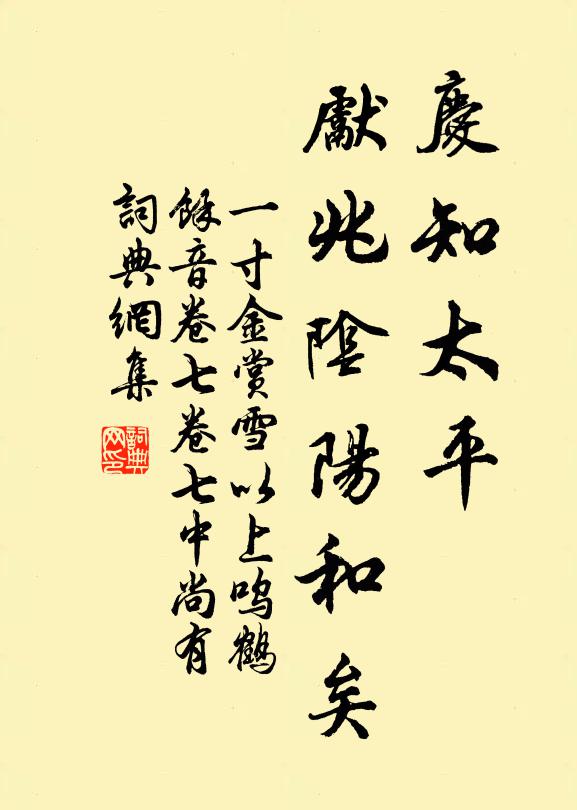 慶知太平
獻兆陰陽和矣
一寸金賞雪以上鳴鶴
餘音卷七卷七中尚有
詞典網集
詞典
网印